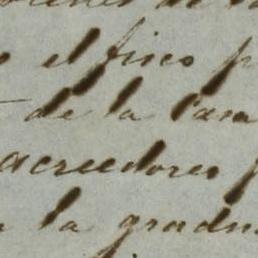 el fisco p
de la Casa
acreedores p
la gradu